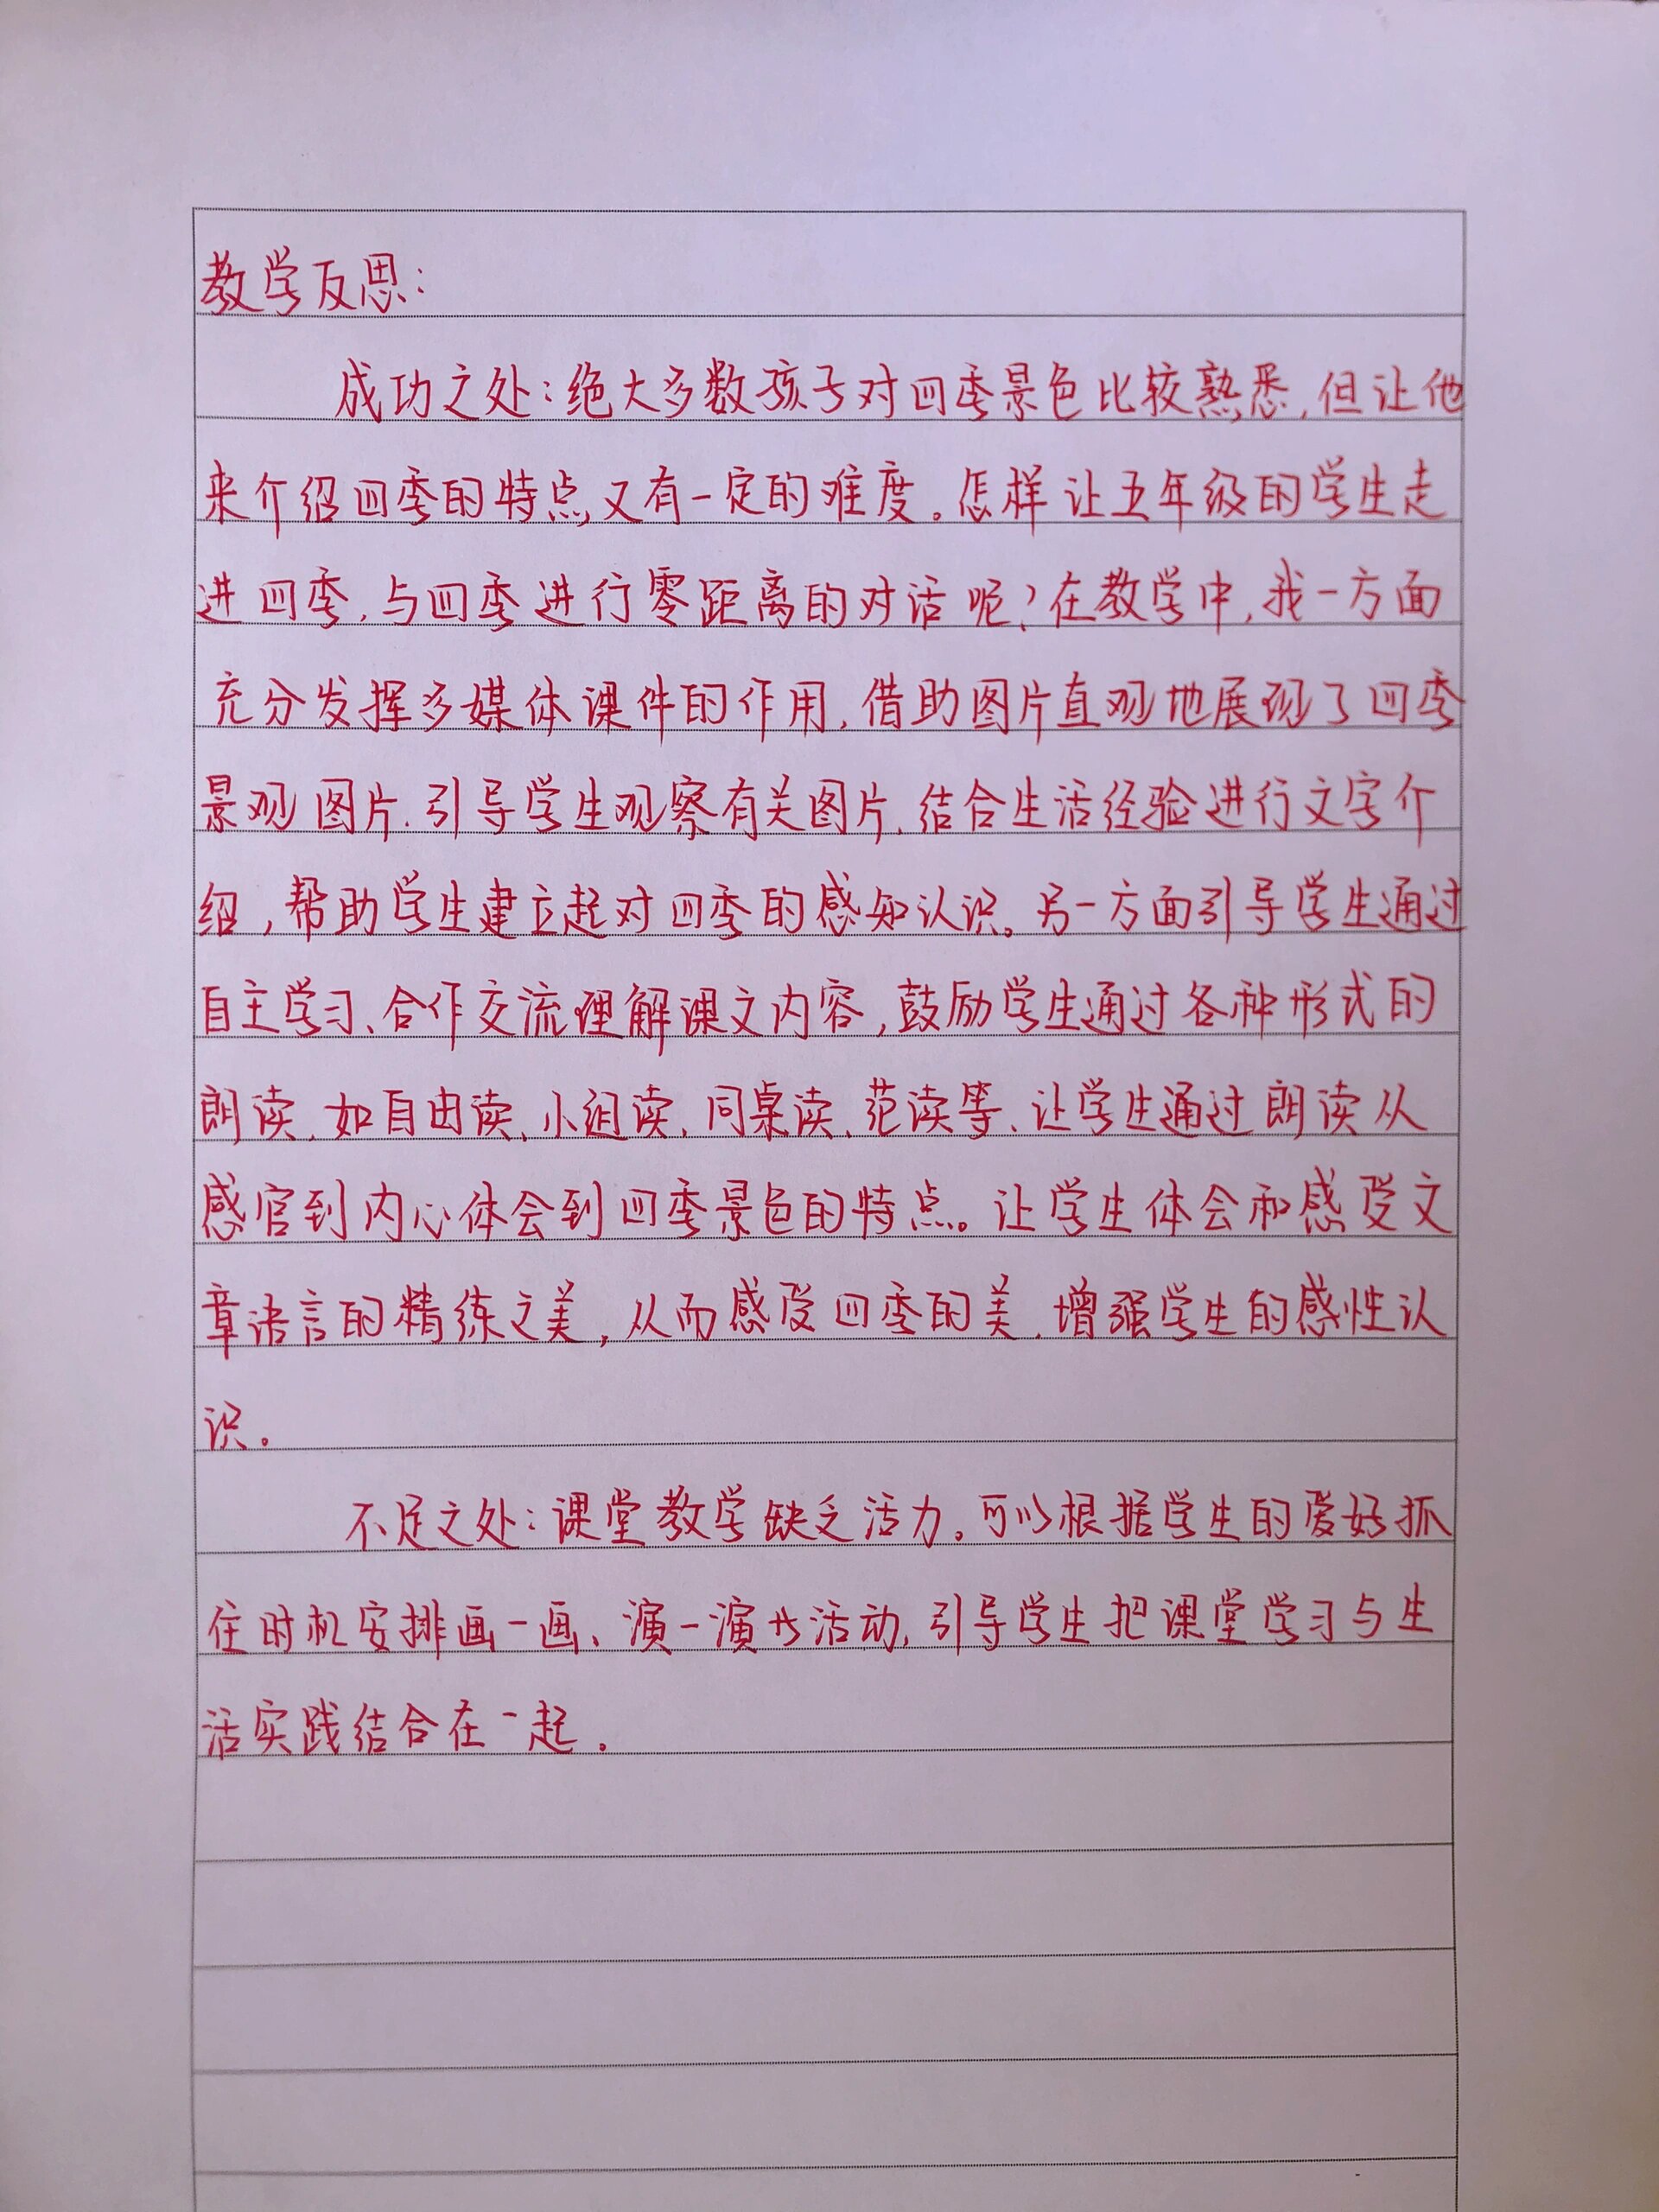 教学反思：
成功之处：绝大多数孩子对四季景色比较熟悉，但让他
来介绍四季的特点又有一定的难度。怎样让五年级的学生走
进四季，与四季进行零距离的对话呢？在教学中，我一方面
充分发挥多媒体课件的作用，借助图片直观地展现了四季
景观图片，引导学生观察有关图片，结合生活经验进行文字介
绍，帮助学生建立起对四季的感知认识。另一方面引导学生通过
自主学习、合作交流理解课文内容，鼓励学生通过各种形式的
朗读，如自由读、小组读、同桌读、范读等、让学生通过朗读从
感官到内心体会到四季景色的特点。让学生体会和感受文
章语言的精练之美，从而感受四季的美，增强学生的感性认
识。
不足之处：课堂教学缺乏活力。可以根据学生的爱好抓
住时机安排画一画、演一演的活动，引导学生把课堂学习与生
活实践结合在一起。